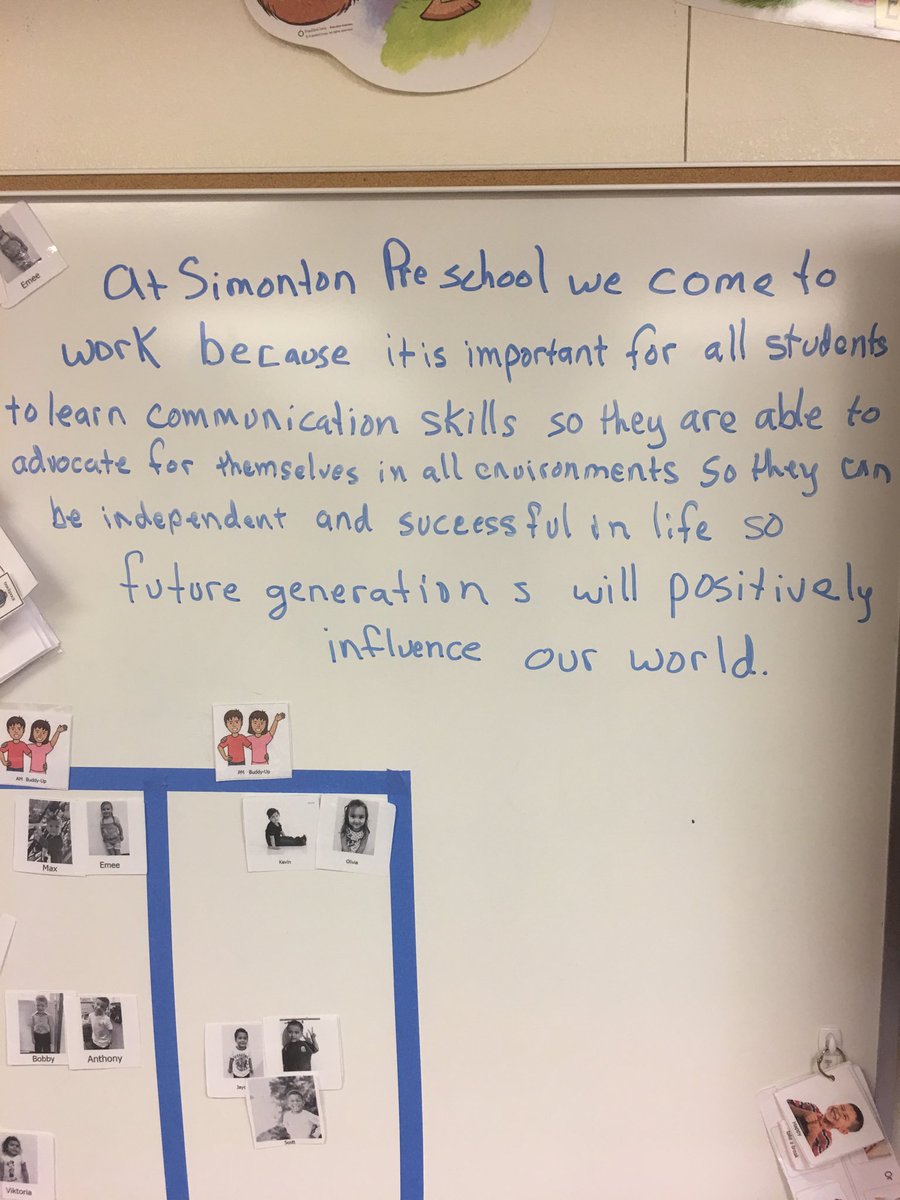 Emee
At Simonton Preschool we come to
work because it is important for all students
to learn communication skills so they are able to
advocate for themselves in all environments so they can
be independent and successful in life so
future generations will positively
influence our world.
AM Buddy-Up
PM Buddy-Up
Max
Emee
Kevin
Olivia
Bobby
Anthony
Scott
Viktoria
Happy
take a break